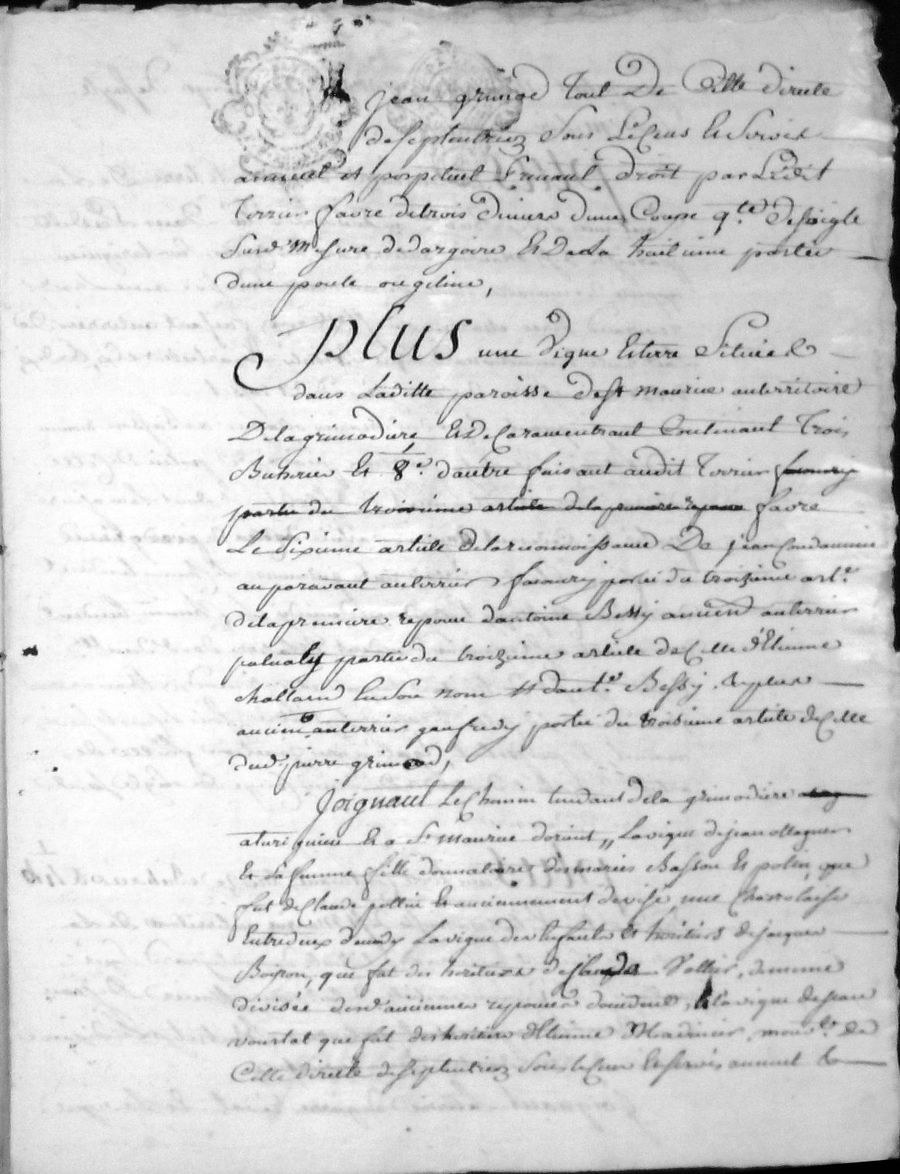 jean grimod Tout De Cette directe
de Septentrion Sous Le Cens et Servis
annuel et perpetuel Faisant droit par Ledit
Terrier favre de trois deniers dune Coupe q.te de soigle
Susd.e Mesure de dargoire et De la huitieme partie
dune poule ou geline,
PLUS une Vigne et terre Scituée
dans Laditte paroisse de St maurice au territoire
De la grimodiere et De Caramentrant Contenant Trois
Bicherées et 8.e dautre faisant audit Terrier
partie du troizieme article de la premiere reponse favre
Le Sixieme article de la reconnoissance De jean Condamine
au paravant au terrier favoury partie du troizieme art.e
de la premiere reponse d'antoine Bessy ancien au terrier
paluaty partie du troizieme article de Celle d'Etienne
challard d'ant.e Bessy et plus
ancien au terrier gonfredy partie du troisieme article de Celle
dud. pierre grimod,
Joignant Le Chemin tendant de la grimodiere
a turiquieu et a St maurice dorient, La vigne de jean
et Sa femme fille donnataire des mariés Basson et polin, que
fut de Claude pollin et anciennement devise une Charolaise
Entredeux La vigne des Enfants et héritiers de jacques
Boiron, que fut des heritiers de Claude Vollier, de meme
divisée desd. anciennes reponses doccident, et la vigne de jean
vourlat que fut des heritiers d'Etienne
Celle directe de Septentrion Sous Le Cens et Servis annuel &